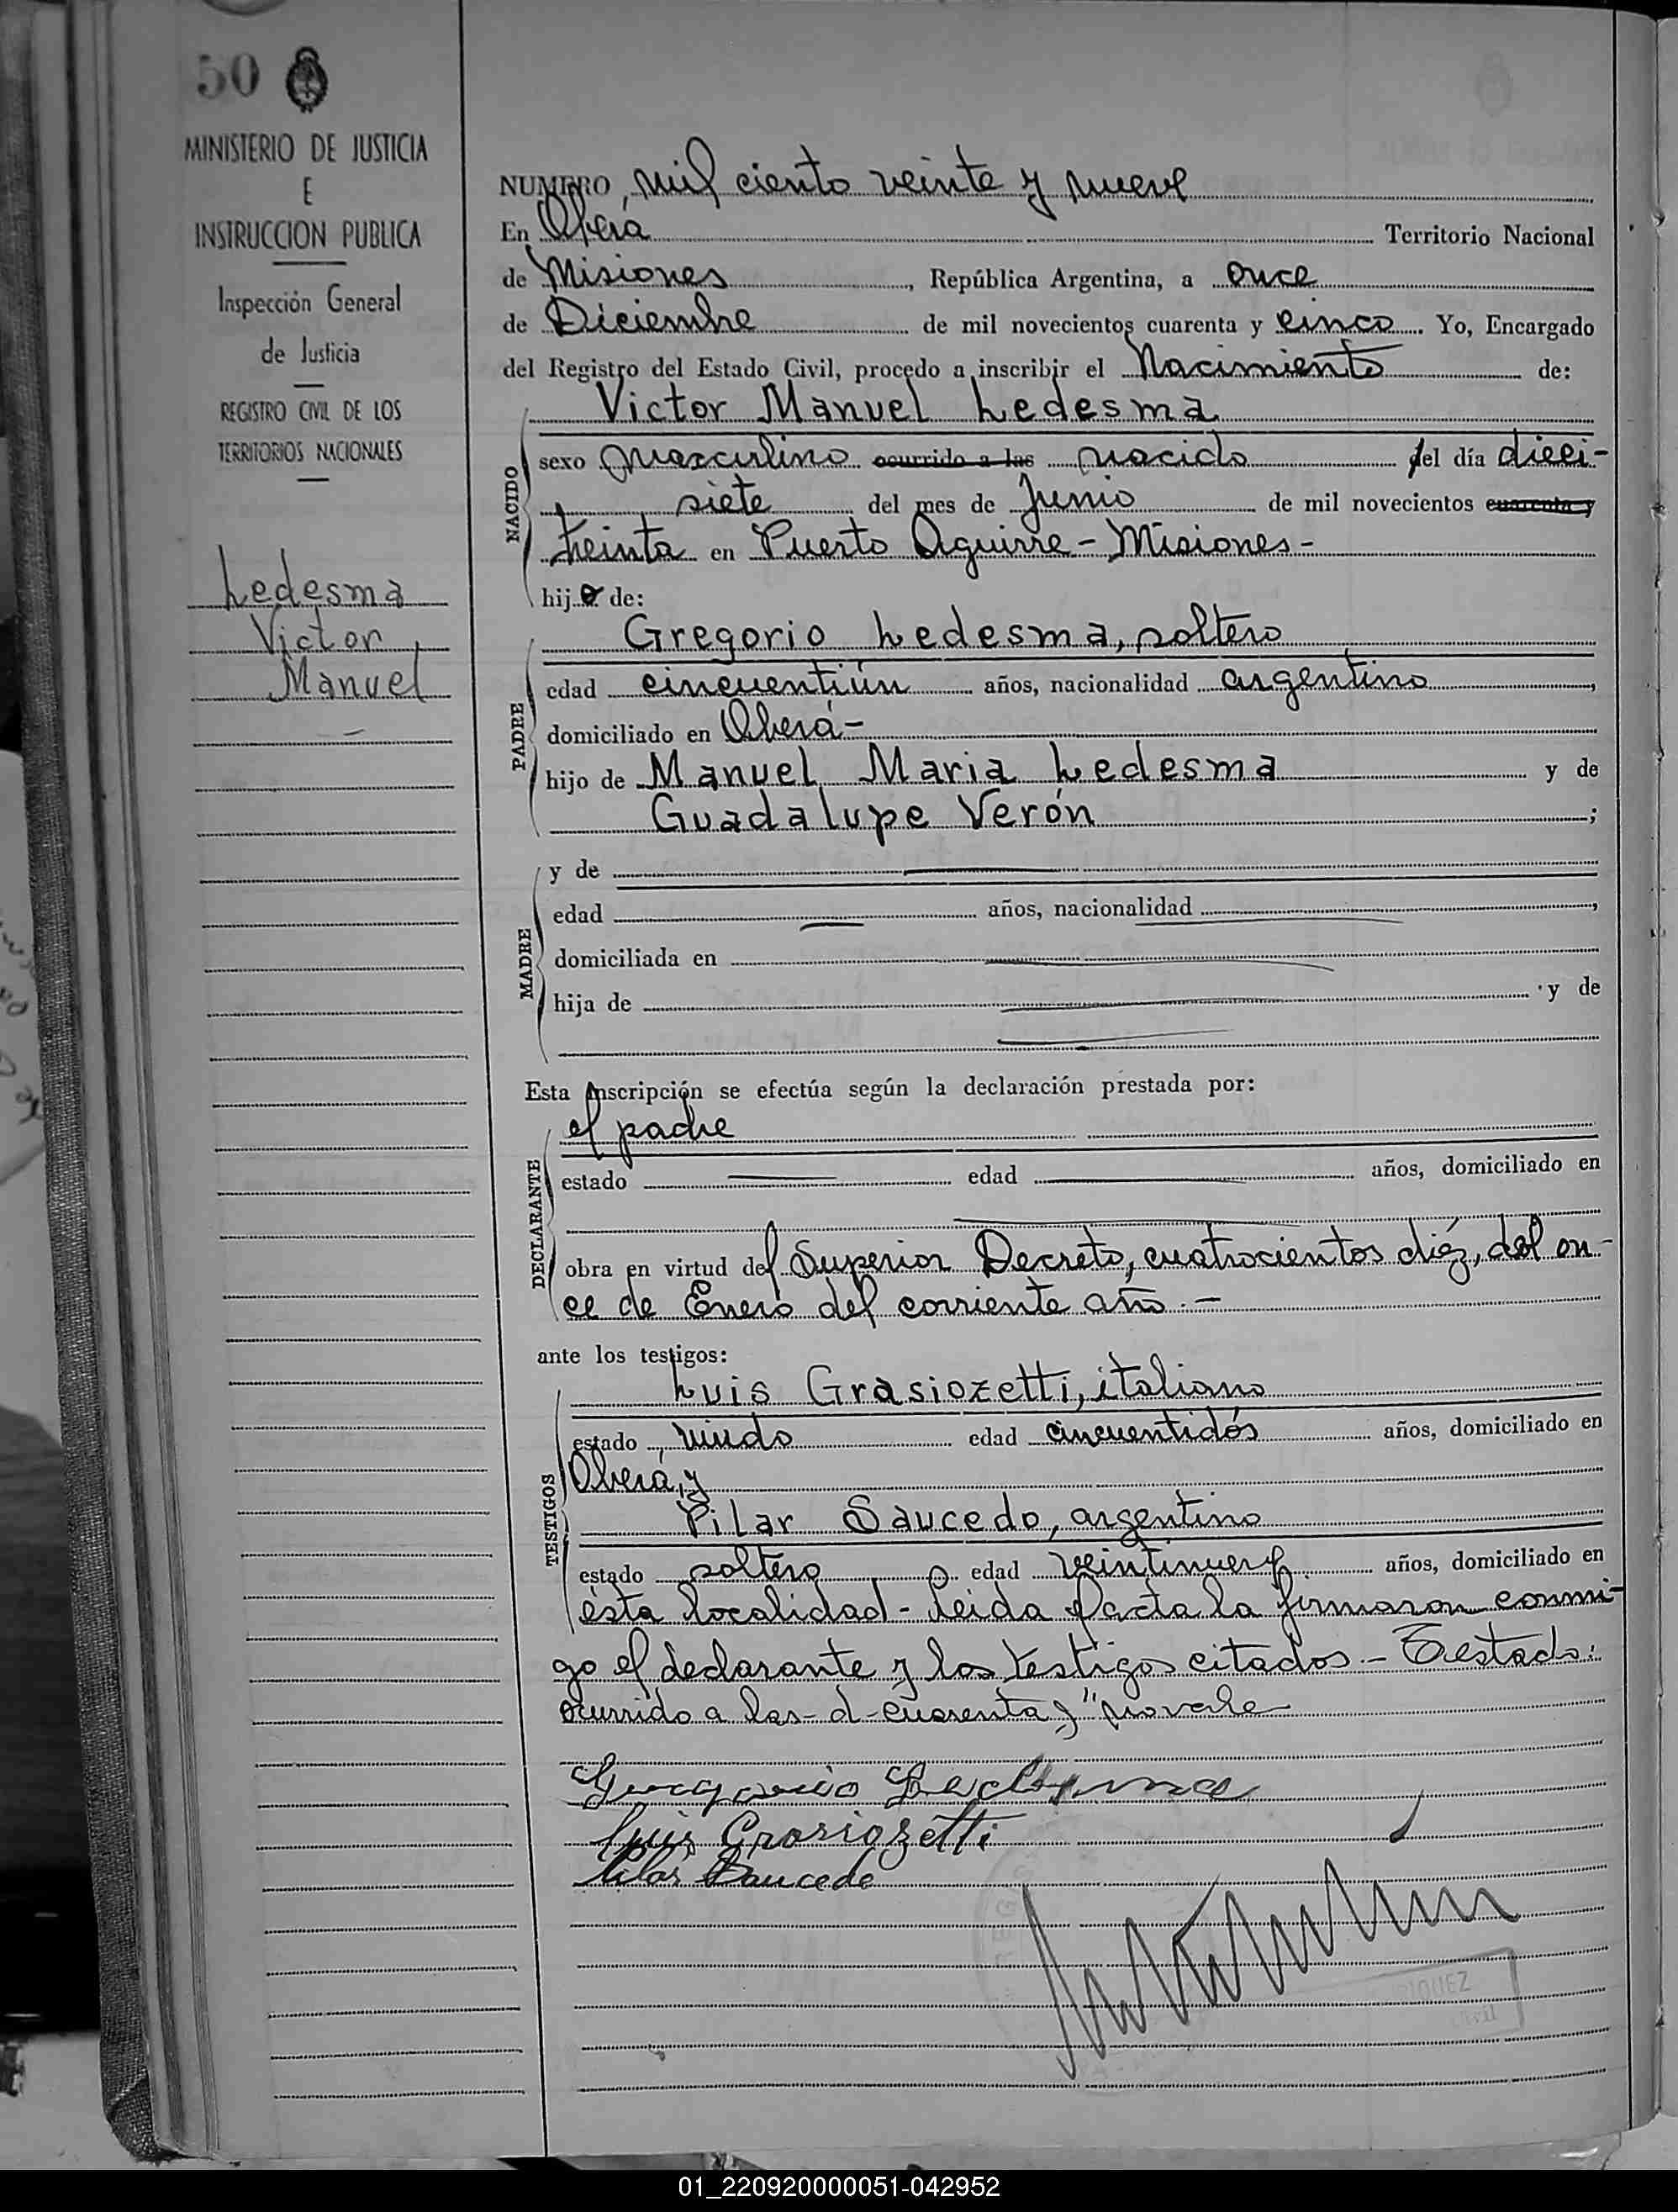 50
MINISTERIO DE JUSTICIA
E
INSTRUCCION PUBLICA
Inspección General
de Justicia
REGISTRO CIVIL DE LOS
TERRITORIOS NACIONALES
Ledesma
Victor
Manuel
NUMERO mil ciento veinte y nueve
En Oberá Territorio Nacional
de Misiones, República Argentina, a once
de Diciembre de mil novecientos cuarenta y cinco. Yo, Encargado
del Registro del Estado Civil, procedo a inscribir el Nacimiento de:
Victor Manuel Ledesma
NACIDO
sexo masculino ocurrido a las nacido del día dieci-
siete del mes de Junio de mil novecientos cuarenta y
treinta en Puerto Aguirre - Misiones -
hijo de:
PADRE
Gregorio Ledesma, soltero
edad cincuentiún años, nacionalidad argentino,
domiciliado en Oberá -
hijo de Manuel Maria Ledesma y de
Guadalupe Verón;
MADRE
y de
edad años, nacionalidad,
domiciliada en
hija de y de
Esta inscripción se efectúa según la declaración prestada por:
DECLARANTE
el padre
estado edad años, domiciliado en
obra en virtud del Superior Decreto, cuatrocientos diéz, del on-
ce de Enero del corriente año. -
ante los testigos:
TESTIGOS
Luis Grasiozetti, italiano
estado, viudo edad cincuentidós años, domiciliado en
Oberá, y
Pilar Saucedo, argentino
estado soltero edad veintinueve años, domiciliado en
ésta localidad - leida el acta la firmaron conmi-
go el declarante y los testigos citados - Testado:
ocurrido a las - d - cuarenta y" no vale
Gregorio Ledesma
Luis Grasiozetti
Pilar Saucedo
01_220920000051-042952